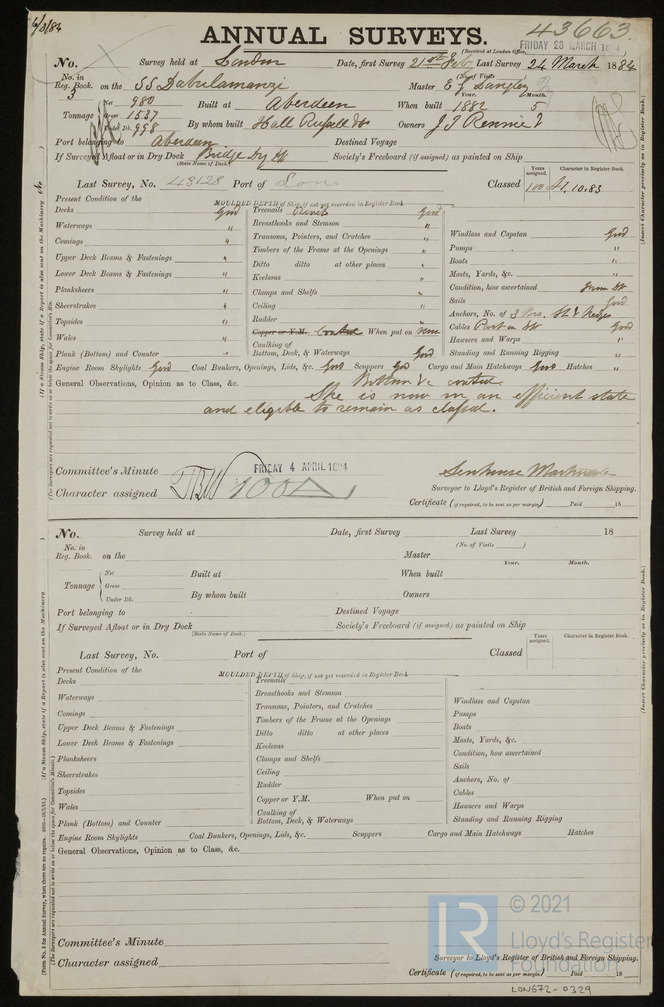 6/3/84
ANNUAL SURVEYS.
43663
(Received at London Office,
FRIDAY 28 MARCH 1884
No. Survey held at London Date, first Survey 21st Feb Last Survey 24 March 1884
(No. of Visits
No. in Reg. Book. on the SS Dabulamanzi Master E
3
Tonnage Net 980 Built at Aberdeen When built Year. 1882 Month. 5
Gross 1537
Under Dk. 998 By whom built Hall Russell & Co Owners J T Rennie
Port belonging to Aberdeen Destined Voyage
If Surveyed Afloat or in Dry Dock Bridge Society's Freeboard (if assigned) as painted on Ship
(State Name of Dock.)
Last Survey, No. 43128 Port of Lon Classed Years assigned. 100 A1 Character in Register Book. 10.83
Present Condition of the MOULDED DEPTH of Ship, if not yet recorded in Register Book
Decks Good Treenails Rivets Good
Waterways " Breasthooks and Stemson " Windlass and Capstan Good
Comings " Transoms, Pointers, and Crutches " Pumps "
Upper Deck Beams & Fastenings " Timbers of the Frame at the Openings " Boats "
Lower Deck Beams & Fastenings " Ditto ditto at other places " Masts, Yards, &c. "
Planksheers " Keelsons " Condition, how ascertained from Dk
Sheerstrakes " Clamps and Shelfs " Sails Good
Topsides " Ceiling " Anchors, No. of 3 St & Kedges
Wales " Rudder " Cables Part in Good
Copper or Y.M. Coated When put on now Hawsers and Warps "
Plank (Bottom) and Counter " Caulking of Bottom, Deck, & Waterways Good Standing and Running Rigging "
Engine Room Skylights Good Coal Bunkers, Openings, Lids, &c. Good Scuppers Good Cargo and Main Hatchways Good Hatches "
General Observations, Opinion as to Class, &c. Bottom &c coated
She is now in an efficient state
and eligible to remain as classed.
Committee's Minute FRIDAY 4 APRIL 1884
Character assigned 100A
Surveyor to Lloyd's Register of British and Foreign Shipping.
Certificate (if required, to be sent as per margin) Paid 18
No. Survey held at Date, first Survey Last Survey 18
(No. of Visits
No. in Reg. Book. on the Master
Tonnage Net Built at When built Year. Month.
Gross
Under Dk. By whom built Owners
Port belonging to Destined Voyage
If Surveyed Afloat or in Dry Dock Society's Freeboard (if assigned) as painted on Ship
(State Name of Dock.)
Last Survey, No. Port of Classed Years assigned. Character in Register Book.
Present Condition of the MOULDED DEPTH of Ship, if not yet recorded in Register Book
Decks Treenails
Waterways Breasthooks and Stemson Windlass and Capstan
Comings Transoms, Pointers, and Crutches Pumps
Upper Deck Beams & Fastenings Timbers of the Frame at the Openings Boats
Lower Deck Beams & Fastenings Ditto ditto at other places Masts, Yards, &c.
Planksheers Keelsons Condition, how ascertained
Sheerstrakes Clamps and Shelfs Sails
Topsides Ceiling Anchors, No. of
Wales Rudder Cables
Copper or Y.M. When put on Hawsers and Warps
Plank (Bottom) and Counter Caulking of Bottom, Deck, & Waterways Standing and Running Rigging
Engine Room Skylights Coal Bunkers, Openings, Lids, &c. Scuppers Cargo and Main Hatchways Hatches
General Observations, Opinion as to Class, &c.
Committee's Minute
Character assigned
Surveyor to Lloyd's Register of British and Foreign Shipping.
Certificate (if required, to be sent as per margin) Paid 18
© 2021
LR
Lloyd's Register
Foundation
LON672-0329